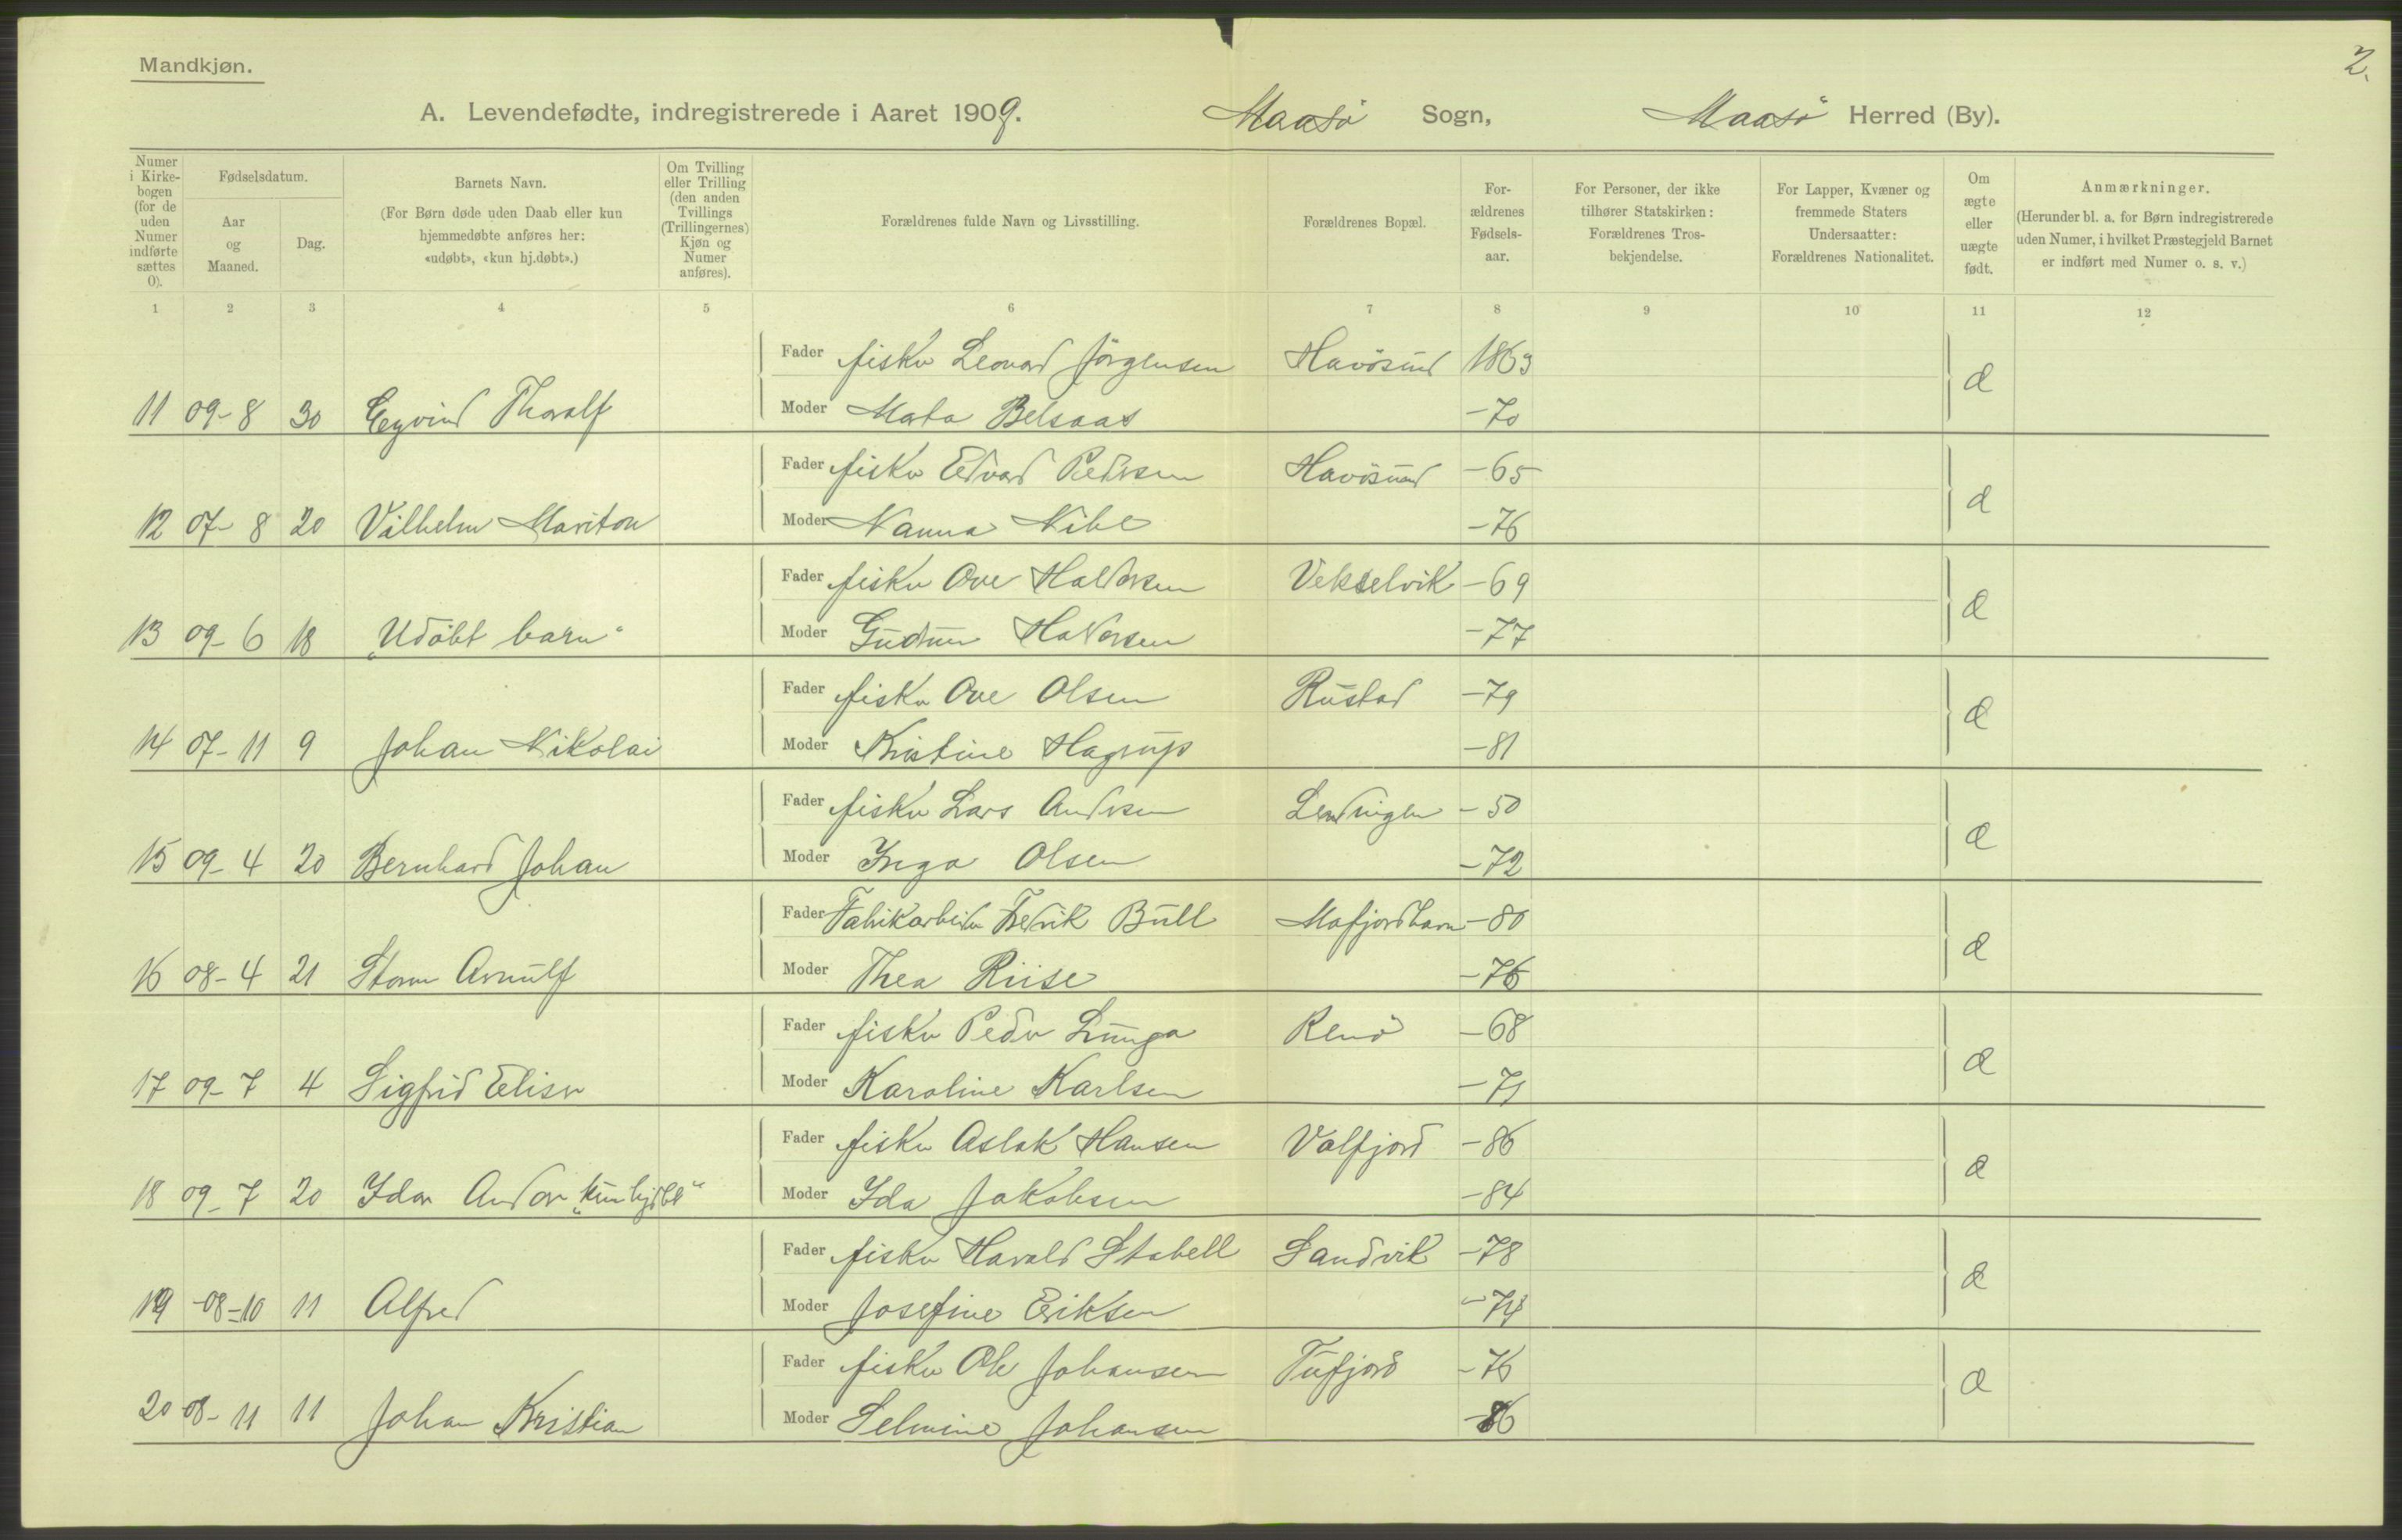 2.
Mandkjøn.
A. Levendefødte, indregistrerede i Aaret 1909. Maasø Sogn, Maasø Herred (By).
Numer i Kirke-bogen (for de uden Numer indførte sættes 0).
Fødselsdatum.
Aar og Maaned.
Dag.
Barnets Navn.
(For Børn døde uden Daab eller kun hjemmedøbte anføres her: «udøbt», «kun hj.døbt».)
Om Tvilling eller Trilling (den anden Tvillings (Trillingernes) Kjøn og Numer anføres).
Forældrenes fulde Navn og Livsstilling.
Forældrenes Bopæl.
For-ældrenes Fødsels-aar.
For Personer, der ikke tilhører Statskirken: Forældrenes Tros-bekjendelse.
For Lapper, Kvæner og fremmede Staters Undersaatter: Forældrenes Nationalitet.
Om ægte eller uægte født.
Anmærkninger.
(Herunder bl. a. for Børn indregistrerede uden Numer, i hvilket Præstegjeld Barnet er indført med Numer o. s. v.)
1 2 3 4 5 6 7 8 9 10 11 12
Fader fisker Leonard Jörgensen Havösund 1863 æ
11 09-8 30 Eyvind Thoralf Moder Marta Belsaas -70
Fader fisker Edvard Pedersen Havösund -65 æ
12 07-8 20 Vilhelm Mariton Moder Nanna Nibe -76
Fader fisker Ove Haldorsen Vekselvik -69 æ
13 09-6 18 „Udöbt barn" Moder Gudrun Haldorsen -77
Fader fisker Ove Olsen Rustad -79 æ
14 07-11 9 Johan Nikolai Moder Kristine Hagrup -81
Fader fisker Lars Andersen -50 æ
15 09-4 20 Bernhard Johan Moder Inga Olsen -72
Fader Fabrikarbeider Fredrik Bull Mafjordhavn -80 æ
16 08-4 21 Storm Arnulf Moder Thea Riise -76
Fader fisker Peder Lunga Renö -68 æ
17 09-7 4 Sigfrid Eliser Moder Karoline Karlsen -71
Fader fisker Aslak Hansen Valfjord -86 æ
18 09-7 20 Idar Andor „kun hjdbt" Moder Ida Jakobsen -84
Fader fisker Harald Stabell Sandvik -78 æ
19 -08-10 11 Alfred Moder Josefine Eriksen -74
Fader fisker Ole Johansen Tufjord -76 æ
20 08-11 11 Johan Kristian Moder Selmine Johansen -86